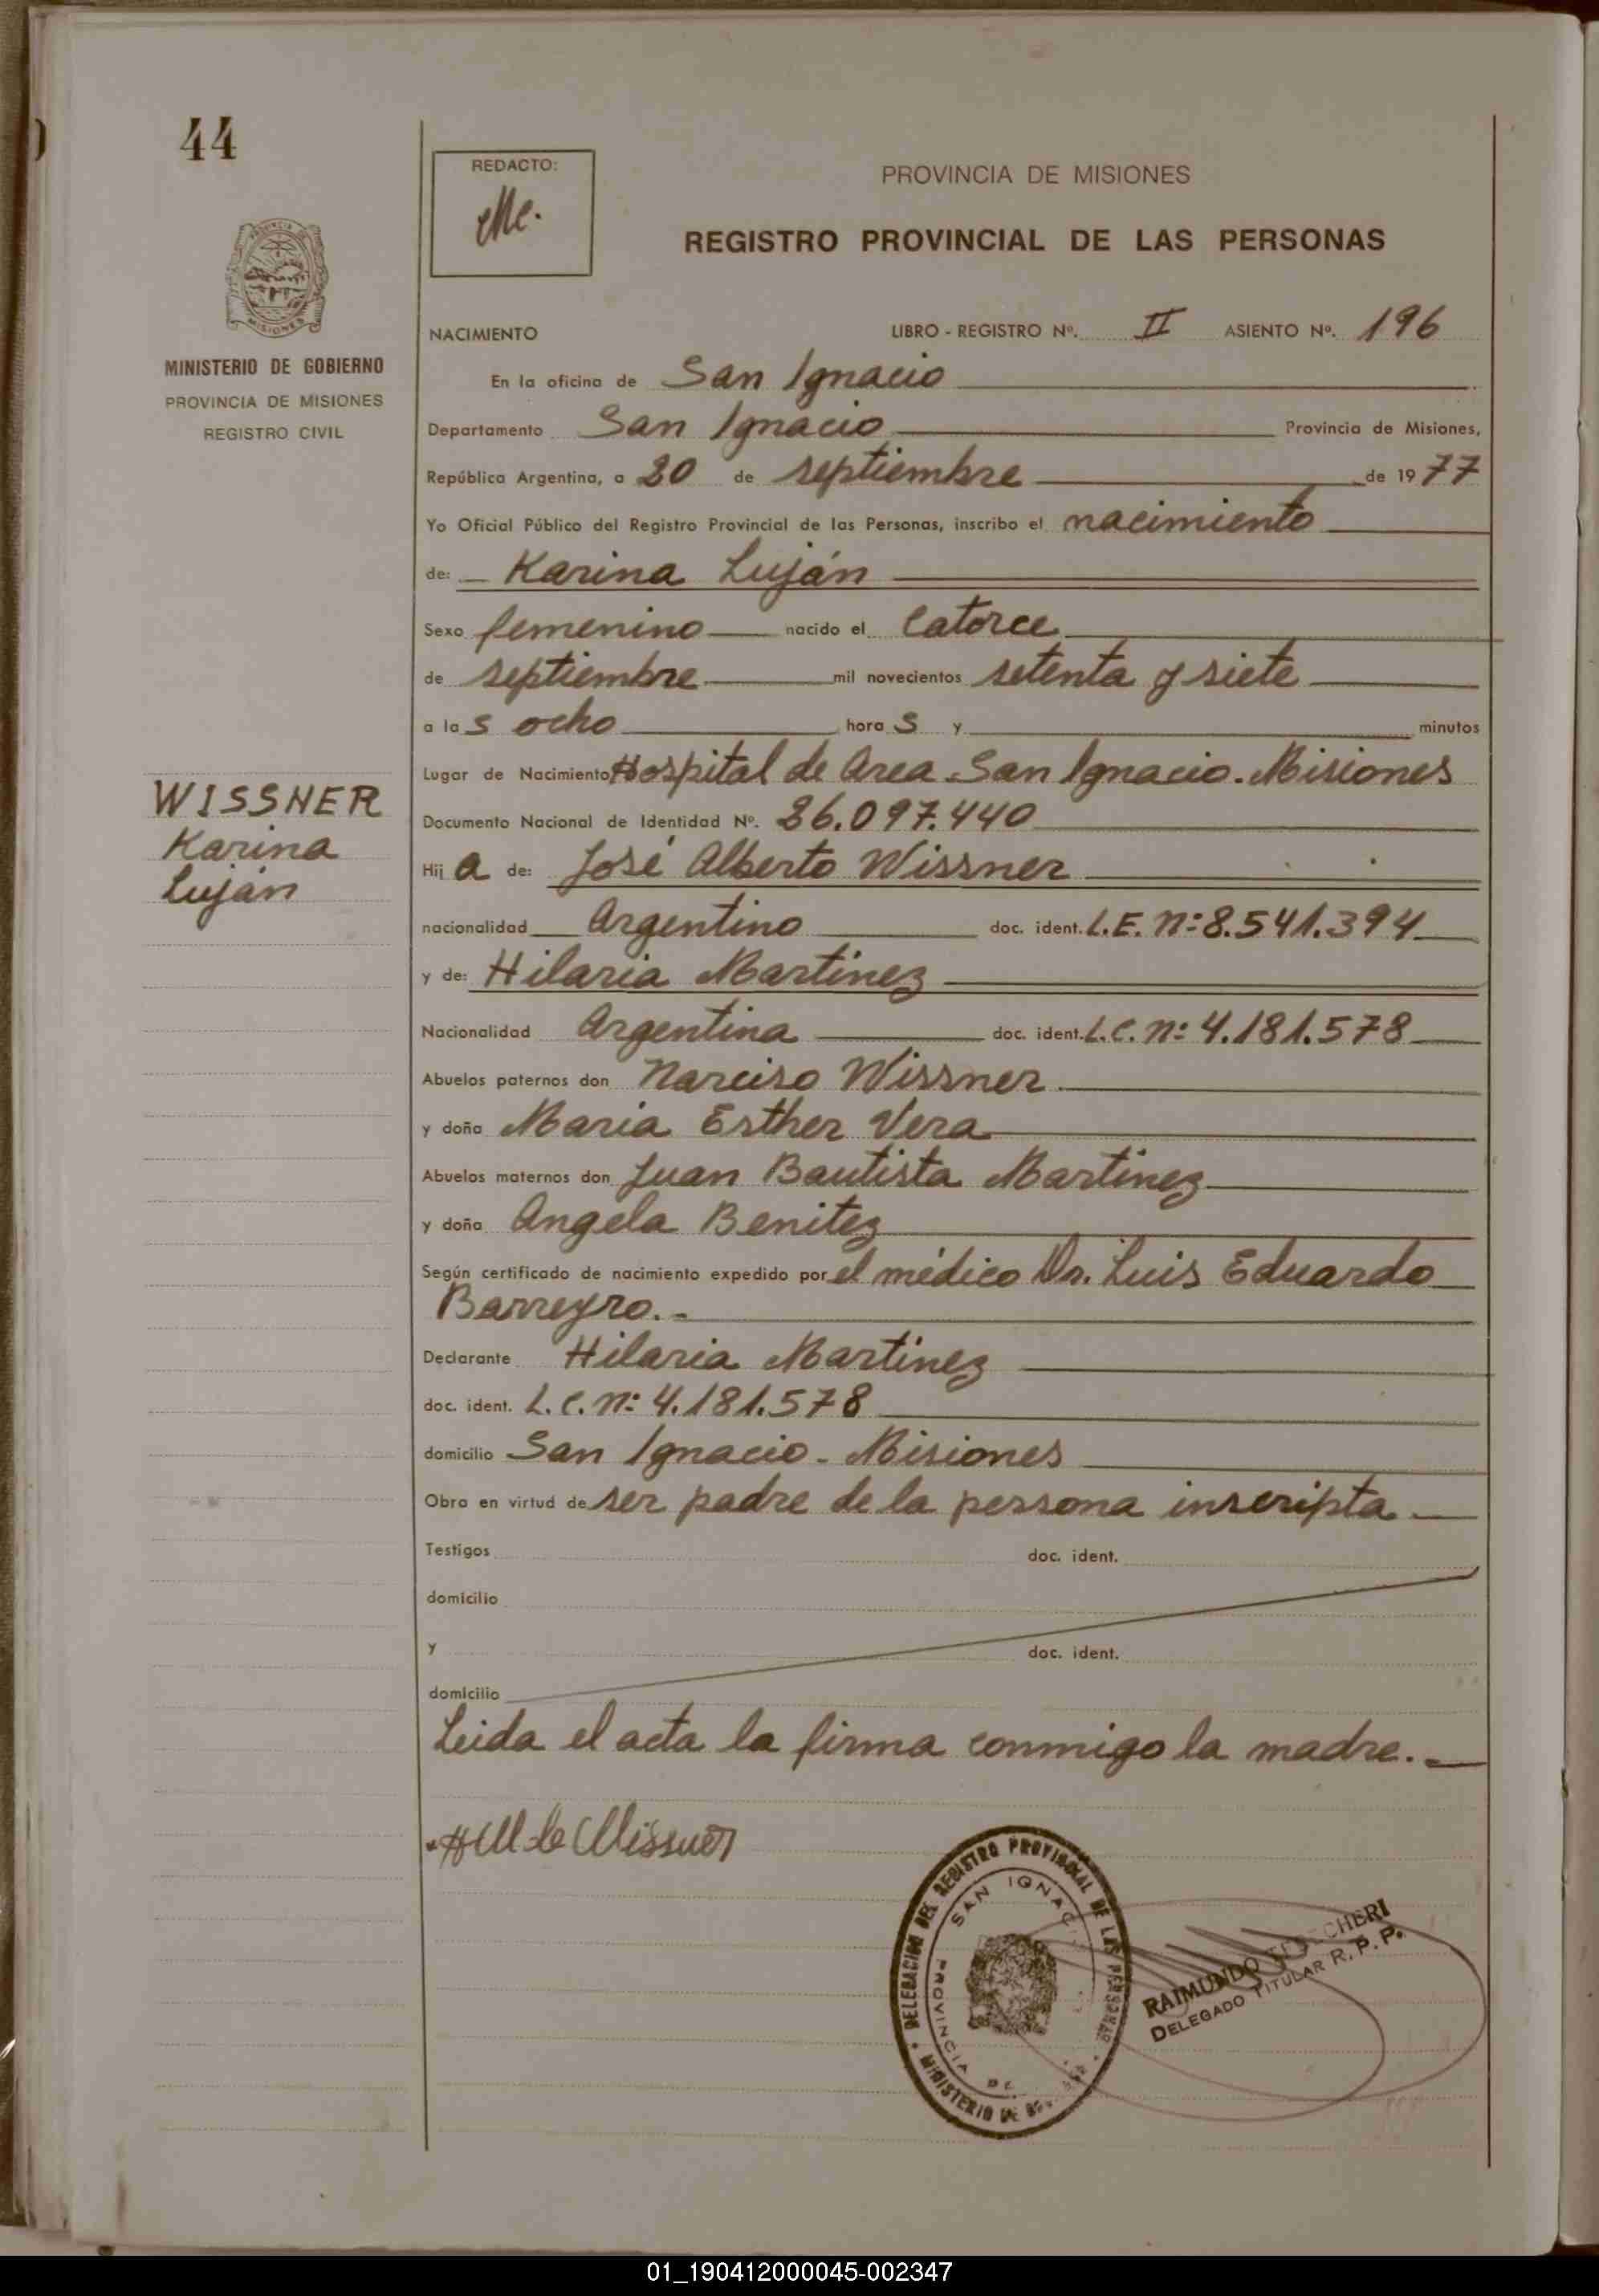 44
REDACTO:
PROVINCIA DE MISIONES
REGISTRO PROVINCIAL DE LAS PERSONAS
MISIONES
MINISTERIO DE GOBIERNO
PROVINCIA DE MISIONES
REGISTRO CIVIL
NACIMIENTO LIBRO - REGISTRO Nº. II ASIENTO Nº. 196
En la oficina de San Ignacio
Departamento San Ignacio Provincia de Misiones,
República Argentina, a 20 de septiembre de 1977
Yo Oficial Público del Registro Provincial de las Personas, inscribo el nacimiento
de: Karina Luján
Sexo femenino nacido el Catorce
de septiembre mil novecientos setenta y siete
a las ocho horas y minutos
Lugar de Nacimiento Hospital de Area San Ignacio. Misiones
WISSNER
Karina
Luján
Documento Nacional de Identidad Nº. 26.097.440
Hija de: José Alberto Wissner
nacionalidad Argentino doc. ident. L.E. nº 8.541.394
y de: Hilaria Martinez
Nacionalidad Argentina doc. ident. L.C. nº 4.181.578
Abuelos paternos don Narciso Wissner
y doña Maria Esther Vera
Abuelos maternos don Juan Bautista Martinez
y doña Angela Benitez
Según certificado de nacimiento expedido por el médico Dr. Luis Eduardo
Barreyro.-
Declarante Hilaria Martinez
doc. ident. L.C. nº 4.181.578
domicilio San Ignacio - Misiones
Obra en virtud de ser padre de la persona inscripta.
Testigos doc. ident.
domicilio
y doc. ident.
domicilio
Leida el acta la firma conmigo la madre.-
H M de Wissner
DELEGACION DEL REGISTRO PROVINCIAL DE LAS PERSONAS
SAN IGNACIO
PROVINCIA DE
MINISTERIO DE
RAIMUNDO
DELEGADO TITULAR R.P.P.
01_190412000045-002347